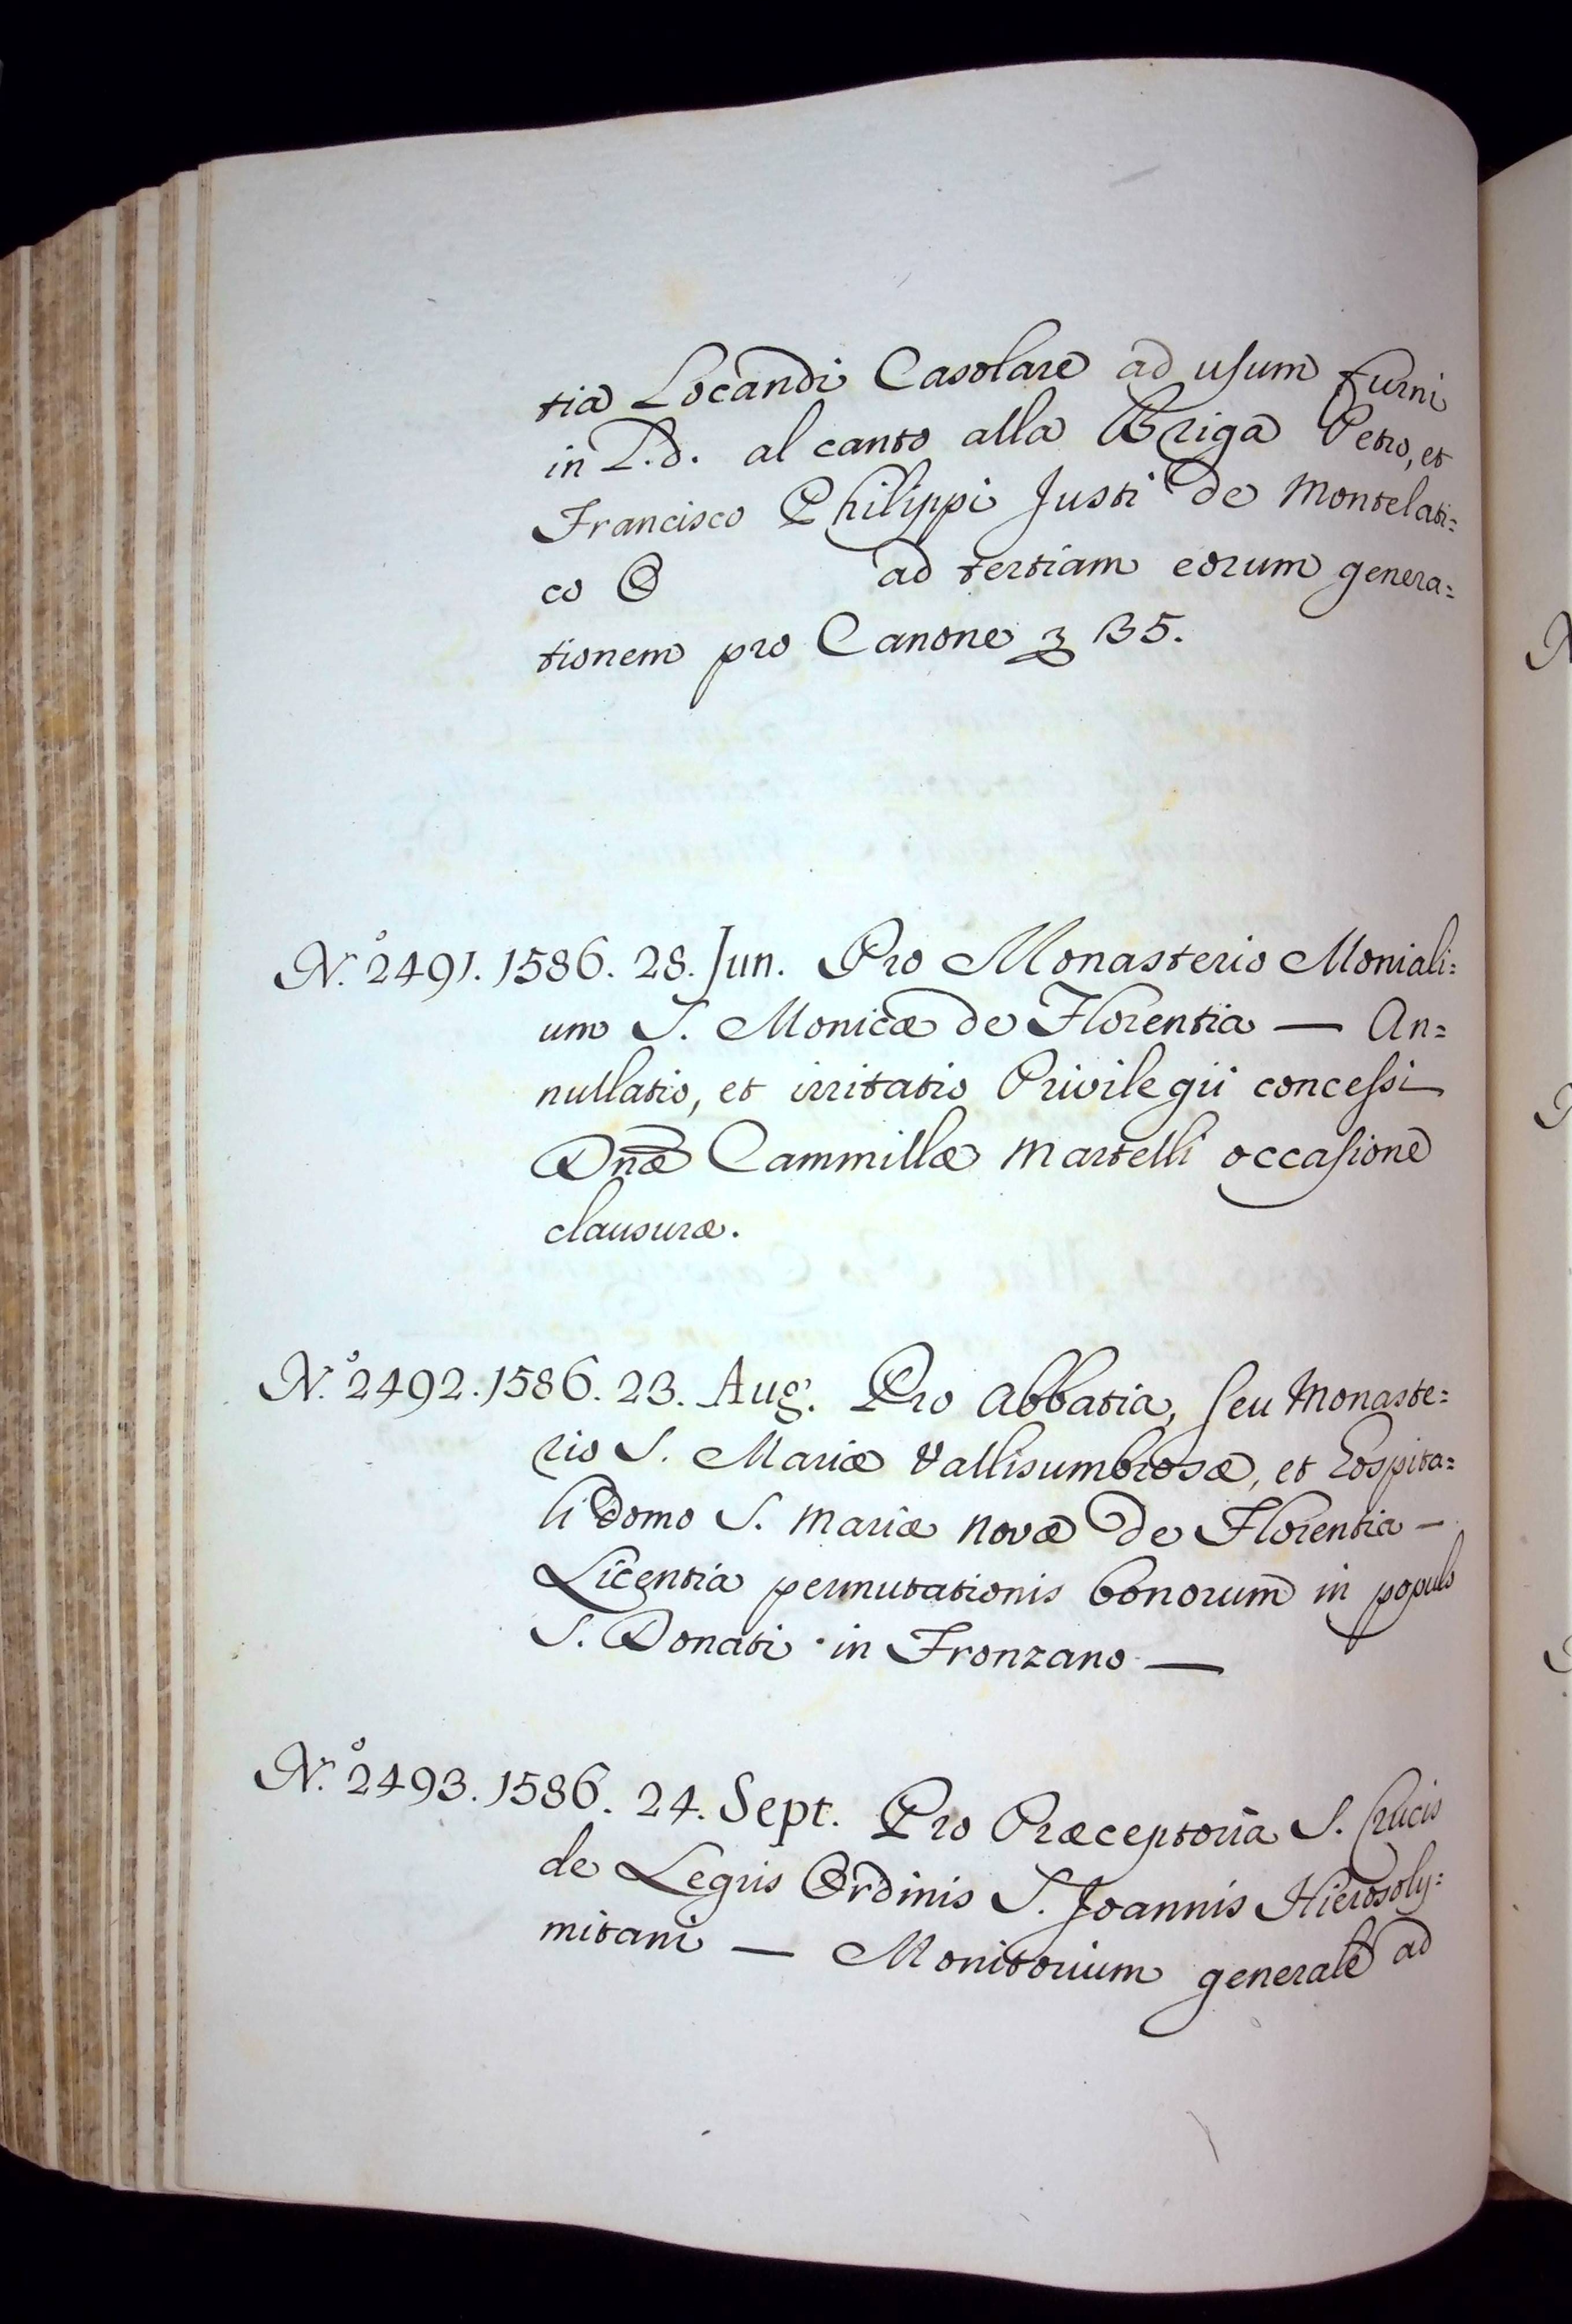 tia Locandi Casolare ad usum furni
in L.d. al canto alla Briga Petro, et
Francisco Philippi Justi de Montelati=
co ad tertiam eorum genera=
tionem pro Canone 35.
N.° 2491. 1586. 28. Jun. Pro Monasterio Moniali=
um S. Monicæ de Florentia — An=
nullatio, et irritatio Privilegii concessi
Dnæ Cammillæ Martelli occasione
clausuræ.
N.° 2492. 1586. 23. Aug. Pro Abbatia, seu Monaste=
rio S. Mariæ Vallisumbrosæ, et Hospita=
li domo S. Mariæ Novæ de Florentia —
Licentia permutationis bonorum in populo
S. Donati in Fronzano —
N.° 2493. 1586. 24. Sept. Pro Præceptoria S. Crucis
de Legris Ordinis S. Joannis Hierosoly=
mitani — Monitorium generale ad